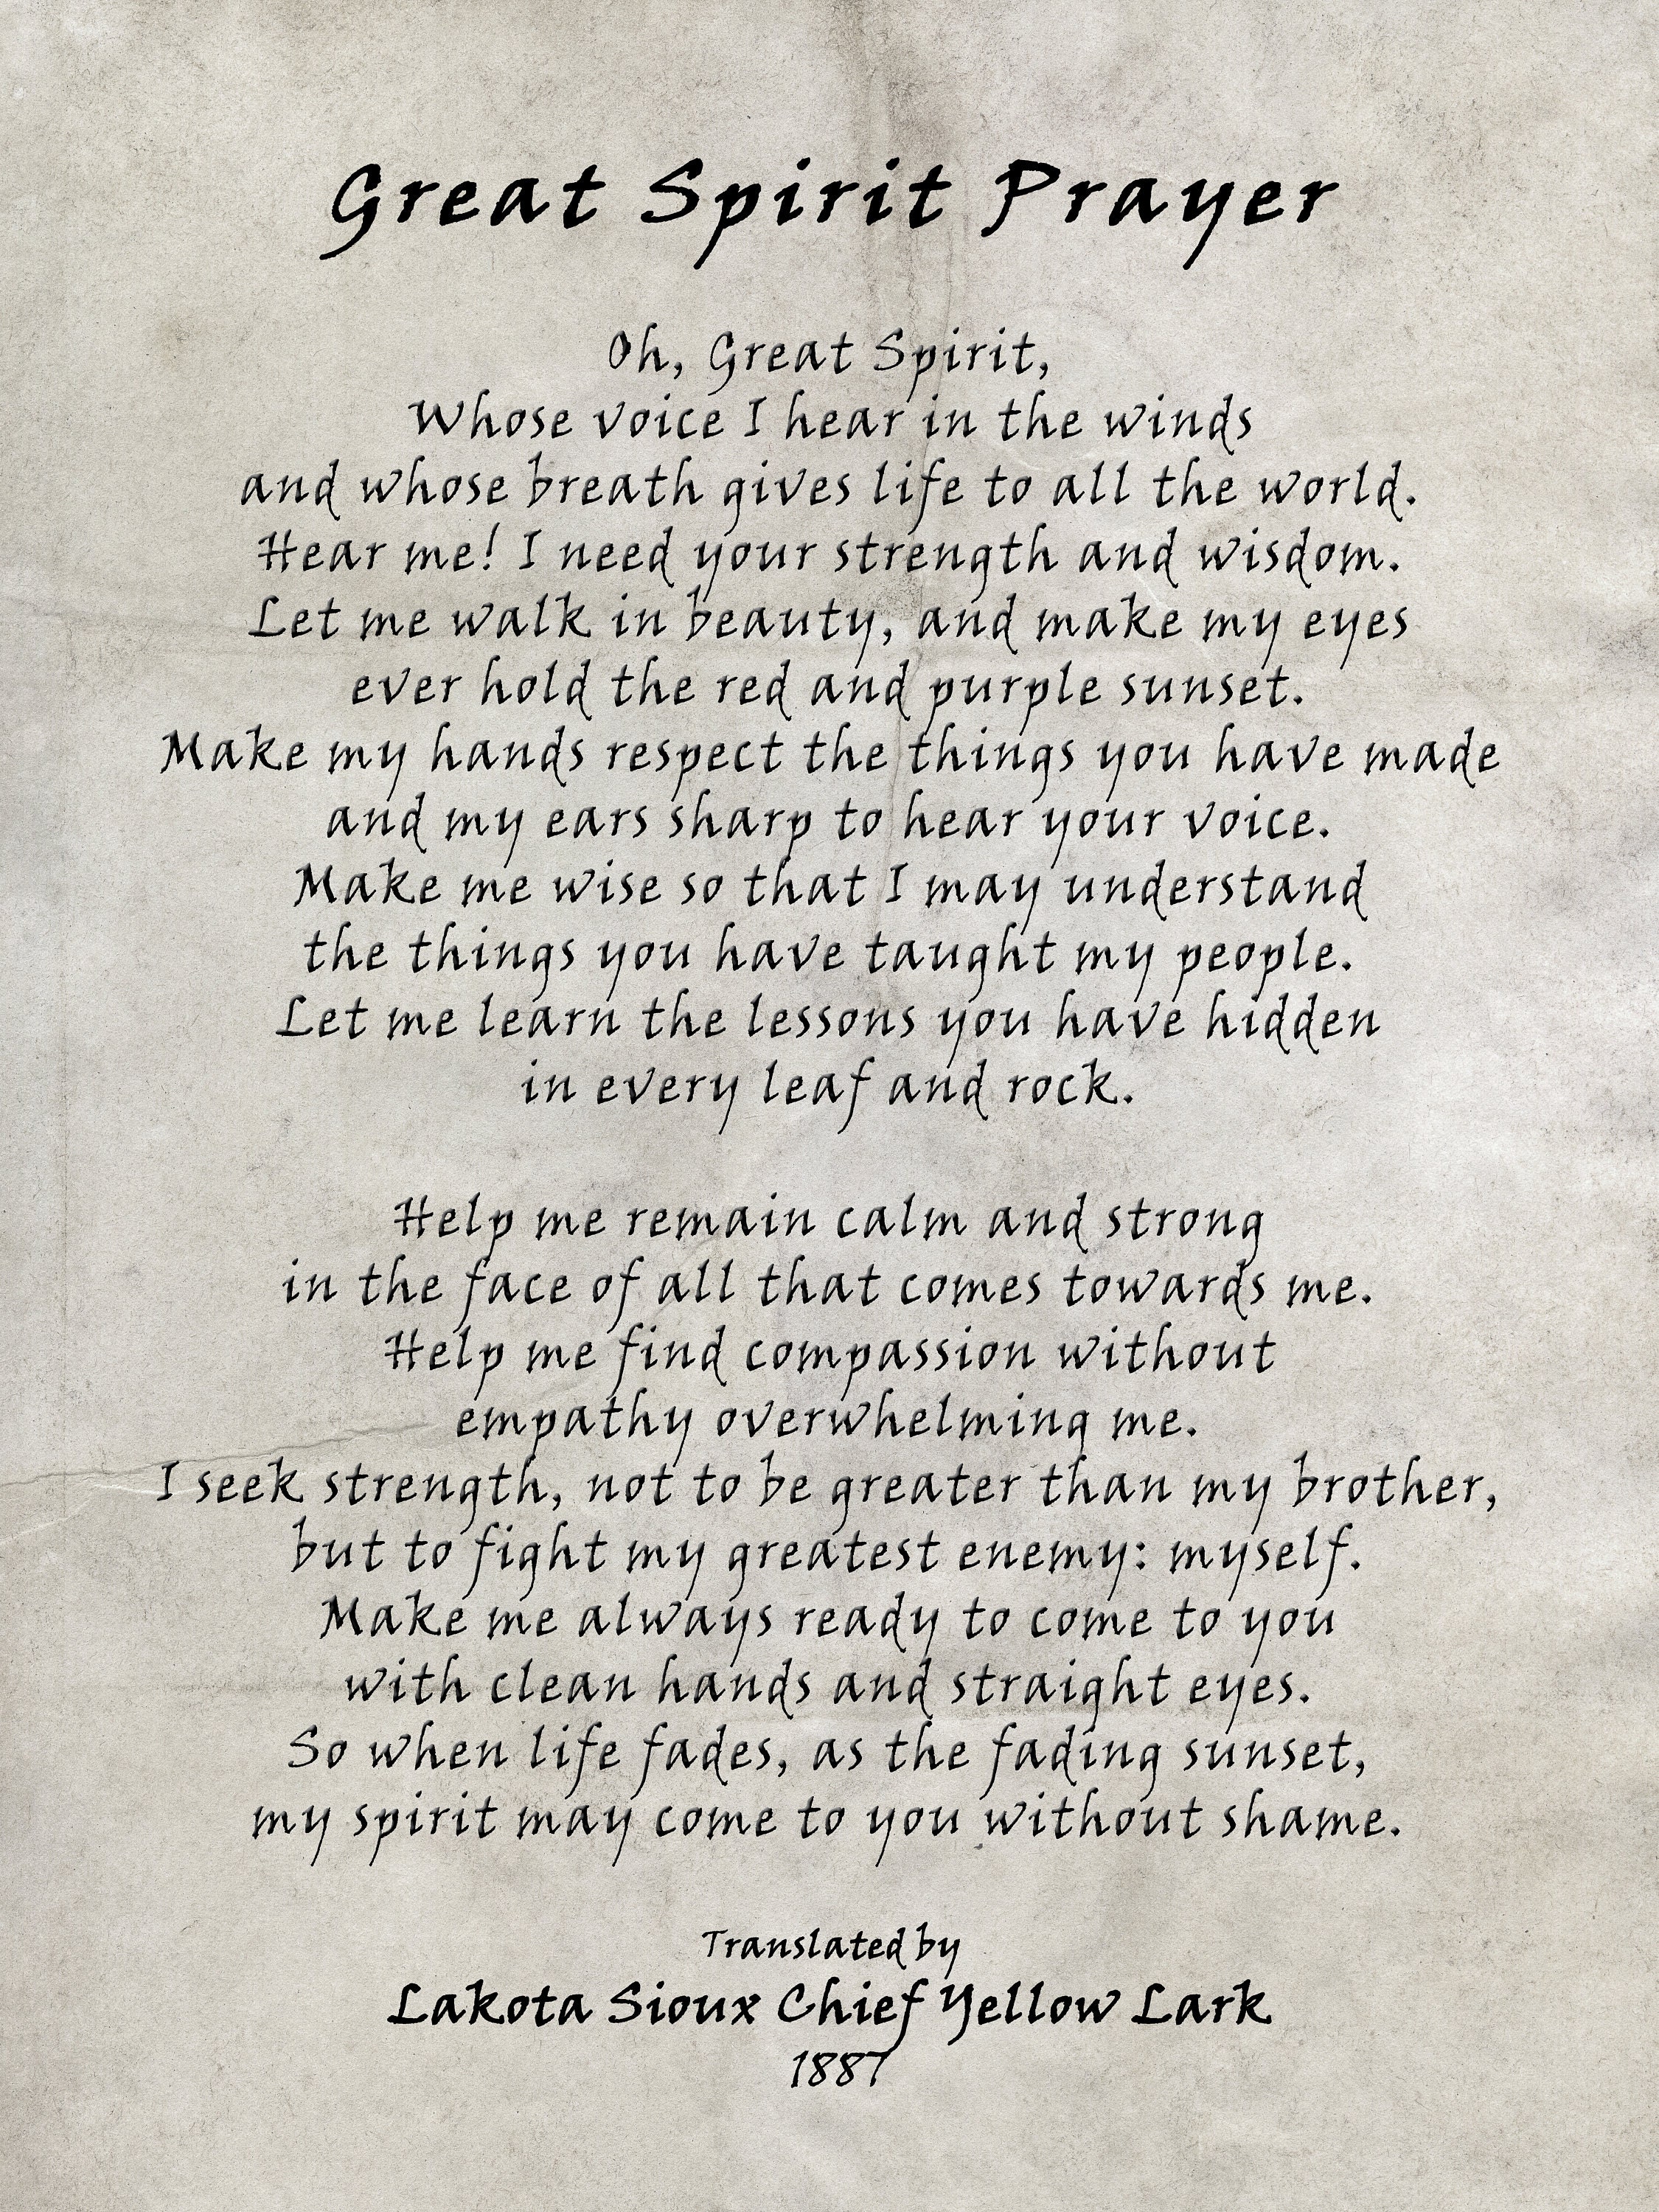 Great Spirit Prayer
Oh, Great Spirit,
Whose voice I hear in the winds
and whose breath gives life to all the world.
Hear me! I need your strength and wisdom.
Let me walk in beauty, and make my eyes
ever hold the red and purple sunset.
Make my hands respect the things you have made
and my ears sharp to hear your voice.
Make me wise so that I may understand
the things you have taught my people.
Let me learn the lessons you have hidden
in every leaf and rock.
Help me remain calm and strong
in the face of all that comes towards me.
Help me find compassion without
empathy overwhelming me.
I seek strength, not to be greater than my brother,
but to fight my greatest enemy: myself.
Make me always ready to come to you
with clean hands and straight eyes.
So when life fades, as the fading sunset,
my spirit may come to you without shame.
Translated by
Lakota Sioux Chief Yellow Lark
1887